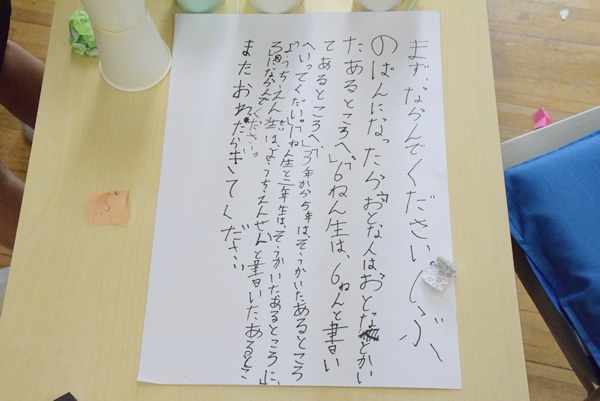 まず、ならんでください。じぶ、
のばんになったら、おとな人はおとなとかい
たあるところへ、「6ねん生は、6ねんと書い
てあるところへ、」「3年から5年は、そうかいたあるところ
へいってくだい。「1ねん生と二年生は、そうかいたあるところに、」
ようちえん生は、ようちえんせんと書いたあるとこ
ろにならんでください。
またおわたらきてください